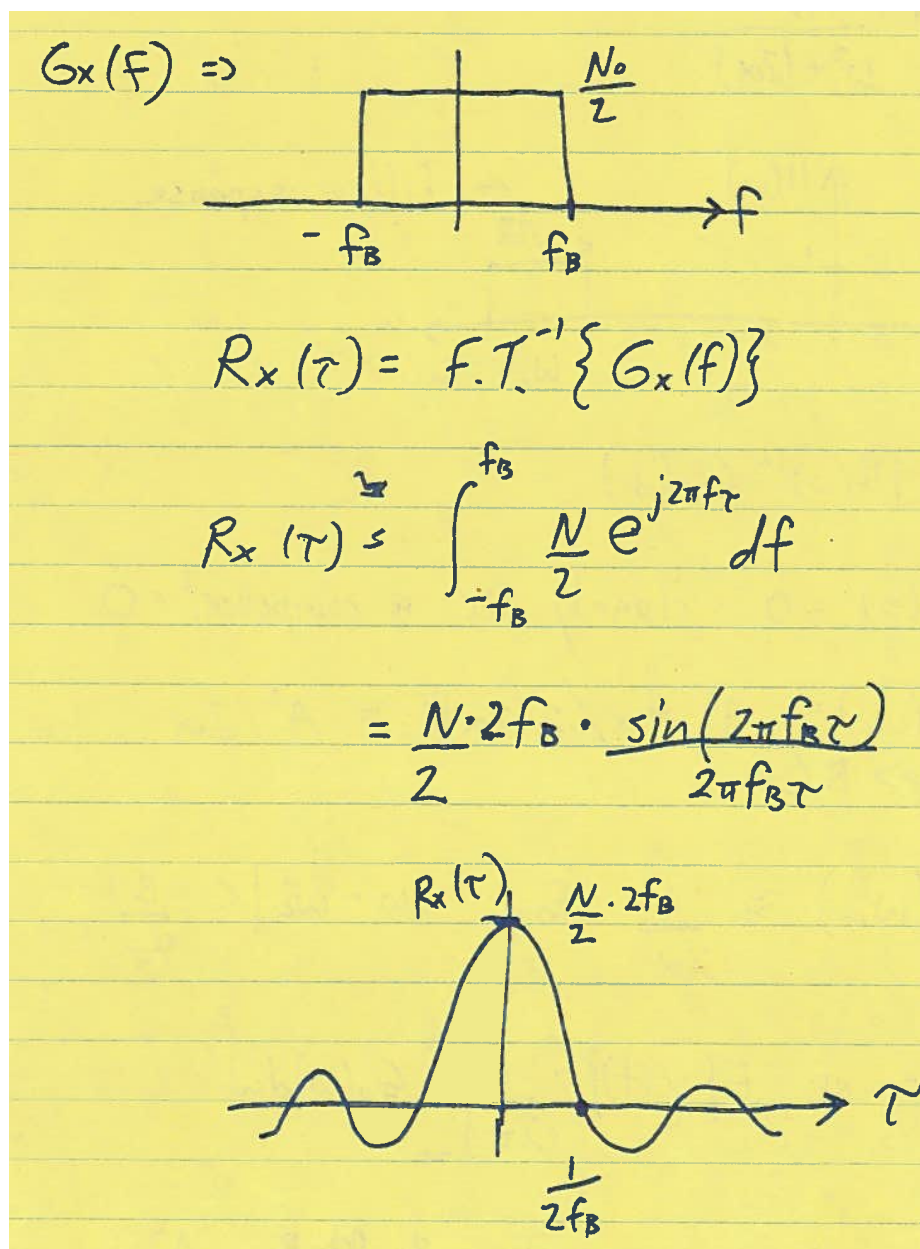 Gx(f) => N₀/2
f
-f_B f_B
Rx(τ) = F.T.⁻¹{Gx(f)}
Rx(τ) = ∫_{-f_B}^{f_B} N/2 e^{j2πfτ} df
= N/2 · 2f_B · sin(2πf_Bτ)/2πf_Bτ
Rx(τ) N/2 · 2f_B
τ
1/2f_B